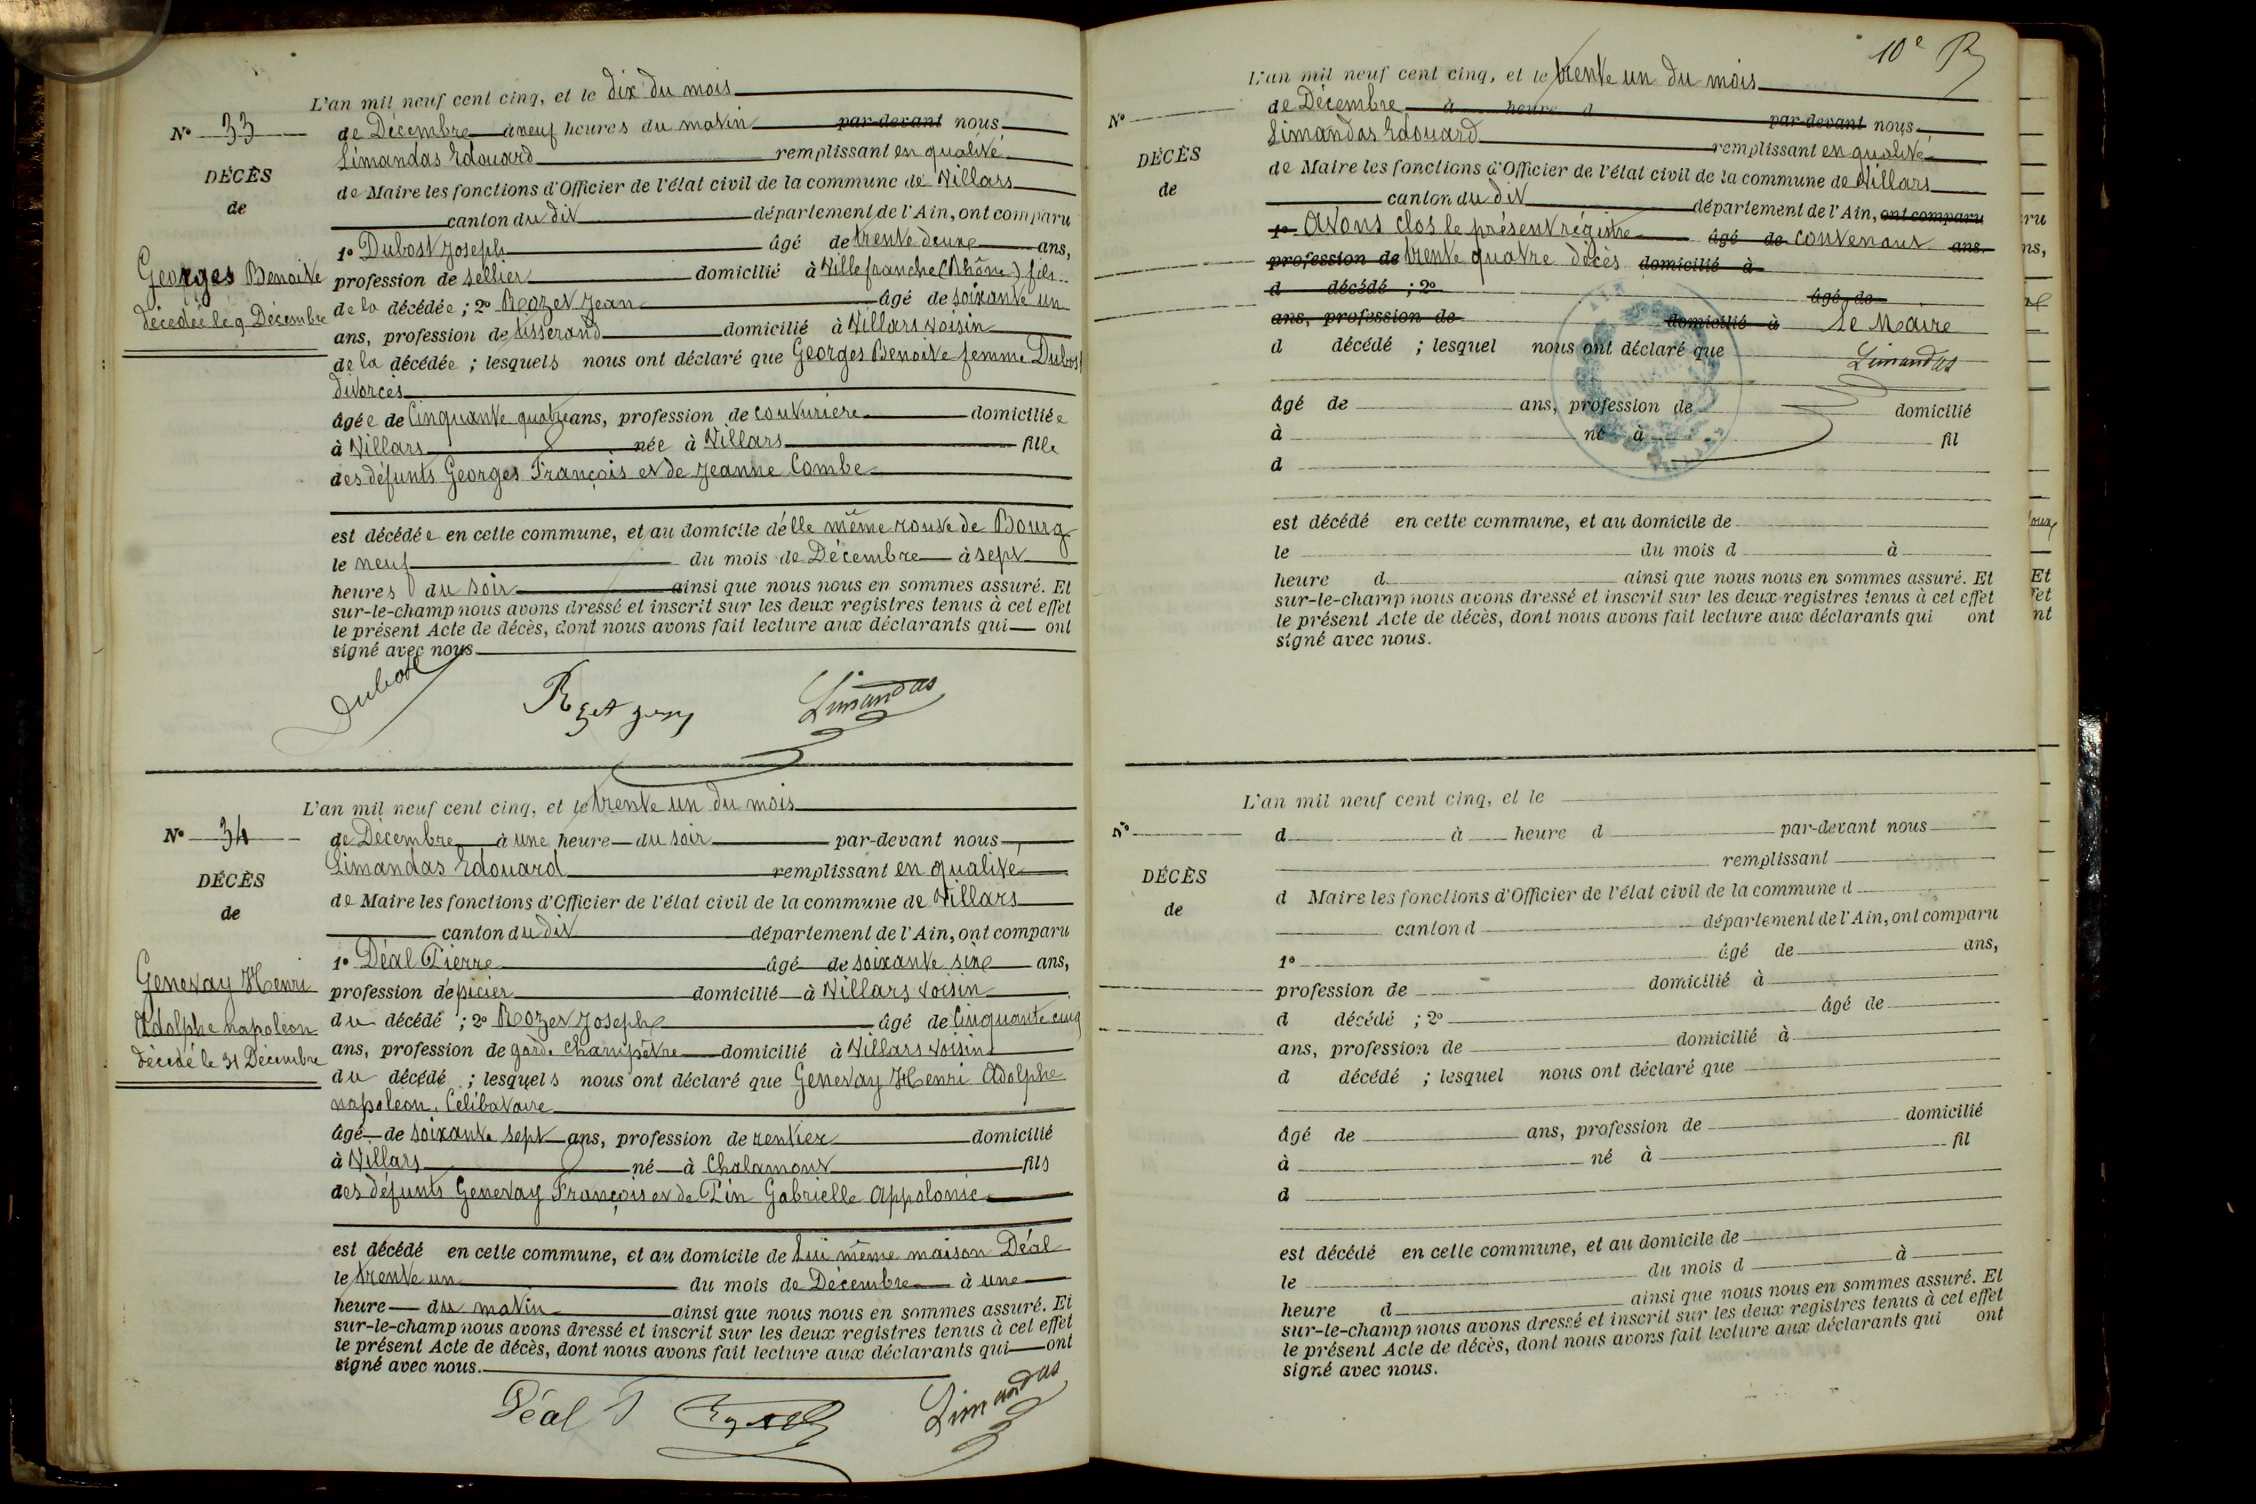 L'an mil neuf cent cinq, et le dix du mois
N° 33
de Décembre à neuf heures du matin par-devant nous
Limandas Edouard remplissant en qualité
DÉCÈS
de Maire les fonctions d'Officier de l'état civil de la commune de Villars
de
canton du dit département de l'Ain, ont comparu
1° Dubost Joseph âgé de trente deux ans,
Georges Benoite
profession de sellier domicilié à Villefranche (Rhône) fils
décédée le 9 Décembre
de la décédée ; 2° Rozet Jean âgé de soixante un
ans, profession de tisserand domicilié à Villars voisin
de la décédée ; lesquels nous ont déclaré que Georges Benoite femme Dubost
divorcés
âgée de Cinquante quatre ans, profession de couturière domiciliée
à Villars née à Villars fille
des défunts Georges François et de Jeanne Combe
est décédée en cette commune, et au domicile d'elle même route de Bourg
le neuf du mois de Décembre à sept
heures du soir ainsi que nous nous en sommes assuré. Et
sur-le-champ nous avons dressé et inscrit sur les deux registres tenus à cet effet
le présent Acte de décès, dont nous avons fait lecture aux déclarants qui ont
signé avec nous
Dubost
Limandas
L'an mil neuf cent cinq, et le trente un du mois
N° 34
de Décembre à une heure du soir par-devant nous
Limandas Edouard remplissant en qualité
DÉCÈS
de Maire les fonctions d'Officier de l'état civil de la commune de Villars
de
canton du dit département de l'Ain, ont comparu
1° Déal Pierre âgé de soixante six ans,
Genevay Henri
profession d'épicier domicilié à Villars voisin
Adolphe napoléon
du décédé ; 2° Rozet Joseph âgé de Cinquante cinq
décédé le 31 Décembre
ans, profession de garde champêtre domicilié à Villars voisin
du décédé ; lesquels nous ont déclaré que Genevay Henri Adolphe
napoléon, Célibataire
âgé de soixante sept ans, profession de rentier domicilié
à Villars né à Chalamont fils
des défunts Genevay François et de Pin Gabrielle Appolonie
est décédé en cette commune, et au domicile de lui même maison Déal
le trente un du mois de Décembre à une
heure du matin ainsi que nous nous en sommes assuré. Et
sur-le-champ nous avons dressé et inscrit sur les deux registres tenus à cet effet
le présent Acte de décès, dont nous avons fait lecture aux déclarants qui ont
signé avec nous.
Déal P
Limandas
10e R
L'an mil neuf cent cinq, et le trente un du mois
N°
de Décembre à heure d par-devant nous
Limandas Edouard remplissant en qualité
DÉCÈS
de Maire les fonctions d'Officier de l'état civil de la commune de Villars
de
canton du dit département de l'Ain, ont comparu
1° Avons clos le présent régistre âgé de contenant ans.
profession de trente quatre décès domicilié à
d décédé ; 2° âgé de
ans, profession de domicilié à Le Maire
d décédé ; lesquel nous ont déclaré que Limandas
âgé de ans, profession de domicilié
à né à fil
d
est décédé en cette commune, et au domicile de
le du mois d à
heure d ainsi que nous nous en sommes assuré. Et
sur-le-champ nous avons dressé et inscrit sur les deux registres tenus à cet effet
le présent Acte de décès, dont nous avons fait lecture aux déclarants qui ont
signé avec nous.
L'an mil neuf cent cinq, et le
N°
d à heure d par-devant nous
remplissant
DÉCÈS
d Maire les fonctions d'Officier de l'état civil de la commune d
de
canton d département de l'Ain, ont comparu
1° âgé de ans,
profession de domicilié à
d décédé ; 2° âgé de
ans, profession de domicilié à
d décédé ; lesquel nous ont déclaré que
âgé de ans, profession de domicilié
à né à fil
d
est décédé en cette commune, et au domicile de
le du mois d à
heure d ainsi que nous nous en sommes assuré. Et
sur-le-champ nous avons dressé et inscrit sur les deux registres tenus à cet effet
le présent Acte de décès, dont nous avons fait lecture aux déclarants qui ont
signé avec nous.